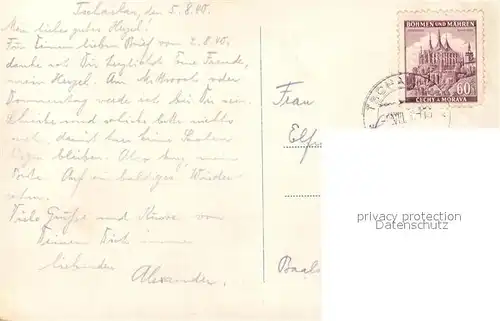 Tschaslau, den 5.8.40.
Mein liebes gutes Herzel!
Für Deinen lieben Brief vom 2.8.40.
danke ich Dir herzlichst. Eine Freude,
mein Herzel. Am Mittwoch oder
Donnerstag werde ich bei Dir sein.
Schicke und schreibe bitte nichts
mehr, damit keine Sachen
liegen bleiben. Also kurz, mein
Auf ein baldiges Wieder-
sehen.
Viele Grüße und Küsse von
Deinem Dich immer
liebenden
Alexander.
Frau
Elf
Baals
BÖHMEN UND MÄHREN
60h
ČECHY A MORAVA
privacy protection
Datenschutz